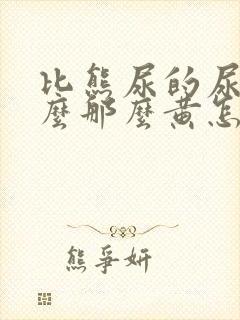 比熊尿的尿
麼那麼黄怎
熊爭妍